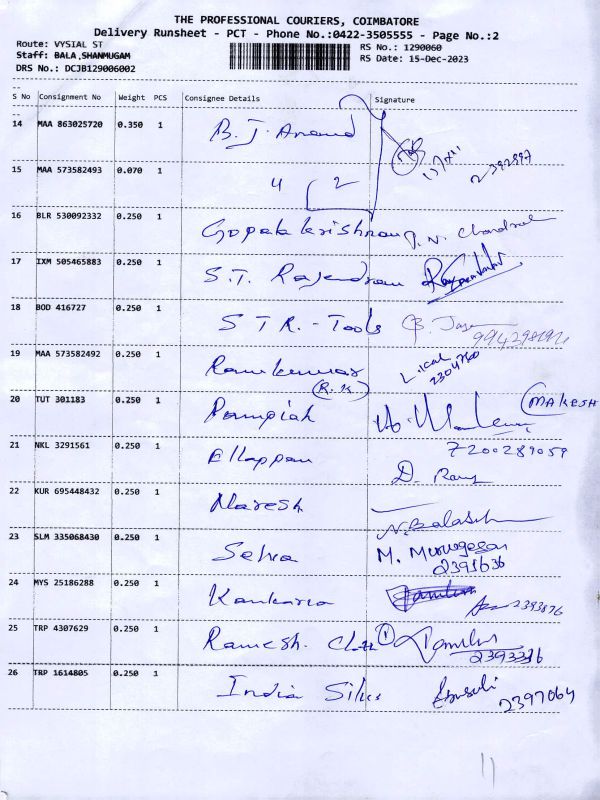 THE PROFESSIONAL COURIERS, COIMBATORE
Delivery Runsheet - PCT - Phone No.:0422-3505555 - Page No.:2
Route: VYSIAL ST
RS No.: 1290060
Staff: BALA,SHANMUGAM
RS Date: 15-Dec-2023
DRS No.: DCJB129006002
S No Consignment No Weight PCS Consignee Details Signature
14 MAA 863025720 0.350 1 B.J. Anand
15 MAA 573582493 0.070 1 4 2
16 BLR 530092332 0.250 1 Gopalakrishnan
17 IXM 505465883 0.250 1 S.T. Rajendran
18 BOD 416727 0.250 1 S T R. - Tools
19 MAA 573582492 0.250 1 Ramkumar 2304760
(R.K)
20 TUT 301183 0.250 1 Pampiah MAKESH
7200289059
21 NKL 3291561 0.250 1 Ellappan D. Ramy
22 KUR 695448432 0.250 1 Naresh
23 SLM 335068430 0.250 1 Selva M. Murugesan
2391636
24 MYS 25186288 0.250 1 Kankaria 2393876
25 TRP 4307629 0.250 1 Ramesh. 1
2393336
26 TRP 1614805 0.250 1 India Silks 2397064
11